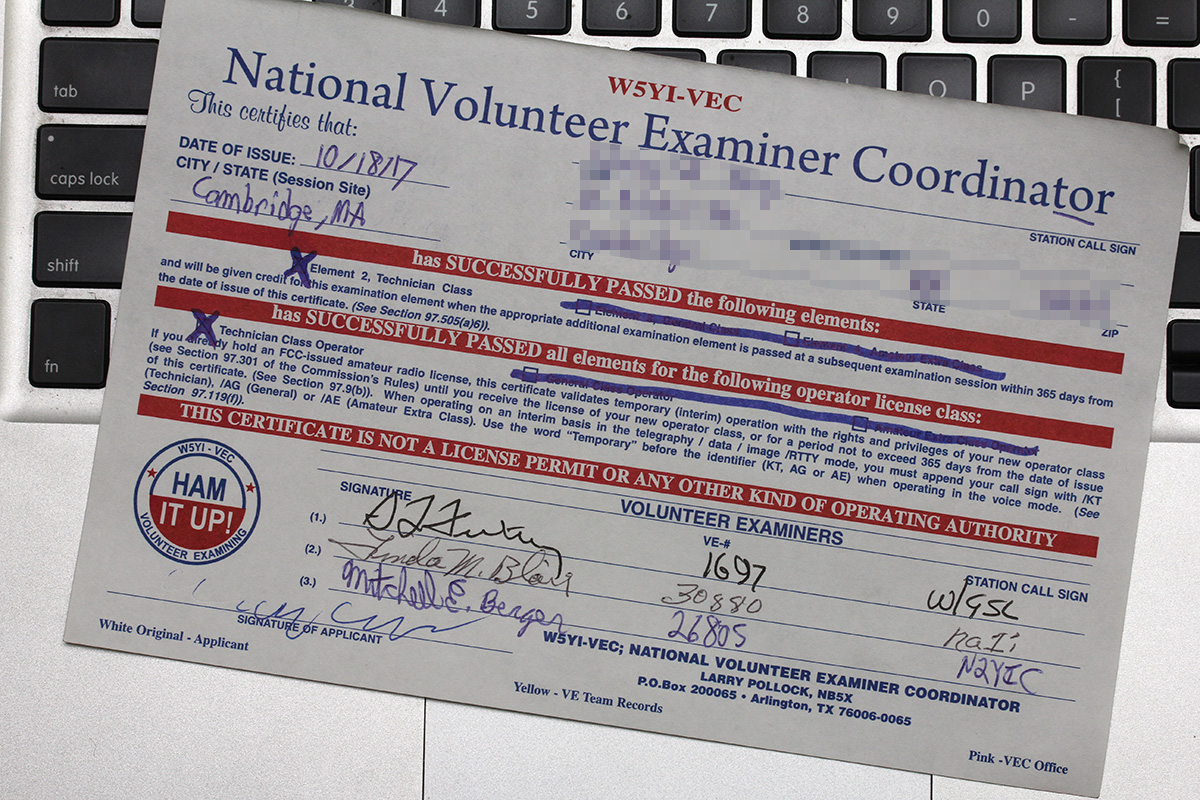 3 4 5 6 7 8 9 0 - =
tab O P { [
caps lock
shift
fn
W5YI-VEC
National Volunteer Examiner Coordinator
This certifies that:
DATE OF ISSUE: 10/18/17
CITY / STATE (Session Site)
Cambridge, MA
STATION CALL SIGN
CITY STATE ZIP
has SUCCESSFULLY PASSED the following elements:
X Element 2, Technician Class Element 3, General Class Element 4, Amateur Extra Class
and will be given credit for this examination element when the appropriate additional examination element is passed at a subsequent examination session within 365 days from
the date of issue of this certificate. (See Section 97.505(a)6)).
has SUCCESSFULLY PASSED all elements for the following operator license class:
X Technician Class Operator General Class Operator Amateur Extra Class Operator
If you already hold an FCC-issued amateur radio license, this certificate validates temporary (interim) operation with the rights and privileges of your new operator class
(see Section 97.301 of the Commission's Rules) until you receive the license of your new operator class, or for a period not to exceed 365 days from the date of issue
of this certificate. (See Section 97.9(b)). When operating on an interim basis in the telegraphy / data / image /RTTY mode, you must append your call sign with /KT
(Technician), /AG (General) or /AE (Amateur Extra Class). Use the word "Temporary" before the identifier (KT, AG or AE) when operating in the voice mode. (See
Section 97.119(f)).
THIS CERTIFICATE IS NOT A LICENSE PERMIT OR ANY OTHER KIND OF OPERATING AUTHORITY
W5YI - VEC
HAM
IT UP!
VOLUNTEER EXAMINING
VOLUNTEER EXAMINERS
SIGNATURE VE-# STATION CALL SIGN
(1.) 1697 W1GSL
(2.) Linda M. Blair 30880 na1i
(3.) Mitchell E. Berger 26805 N2YIC
SIGNATURE OF APPLICANT
W5YI-VEC; NATIONAL VOLUNTEER EXAMINER COORDINATOR
LARRY POLLOCK, NB5X
P.O.Box 200065 • Arlington, TX 76006-0065
White Original - Applicant
Yellow - VE Team Records
Pink -VEC Office